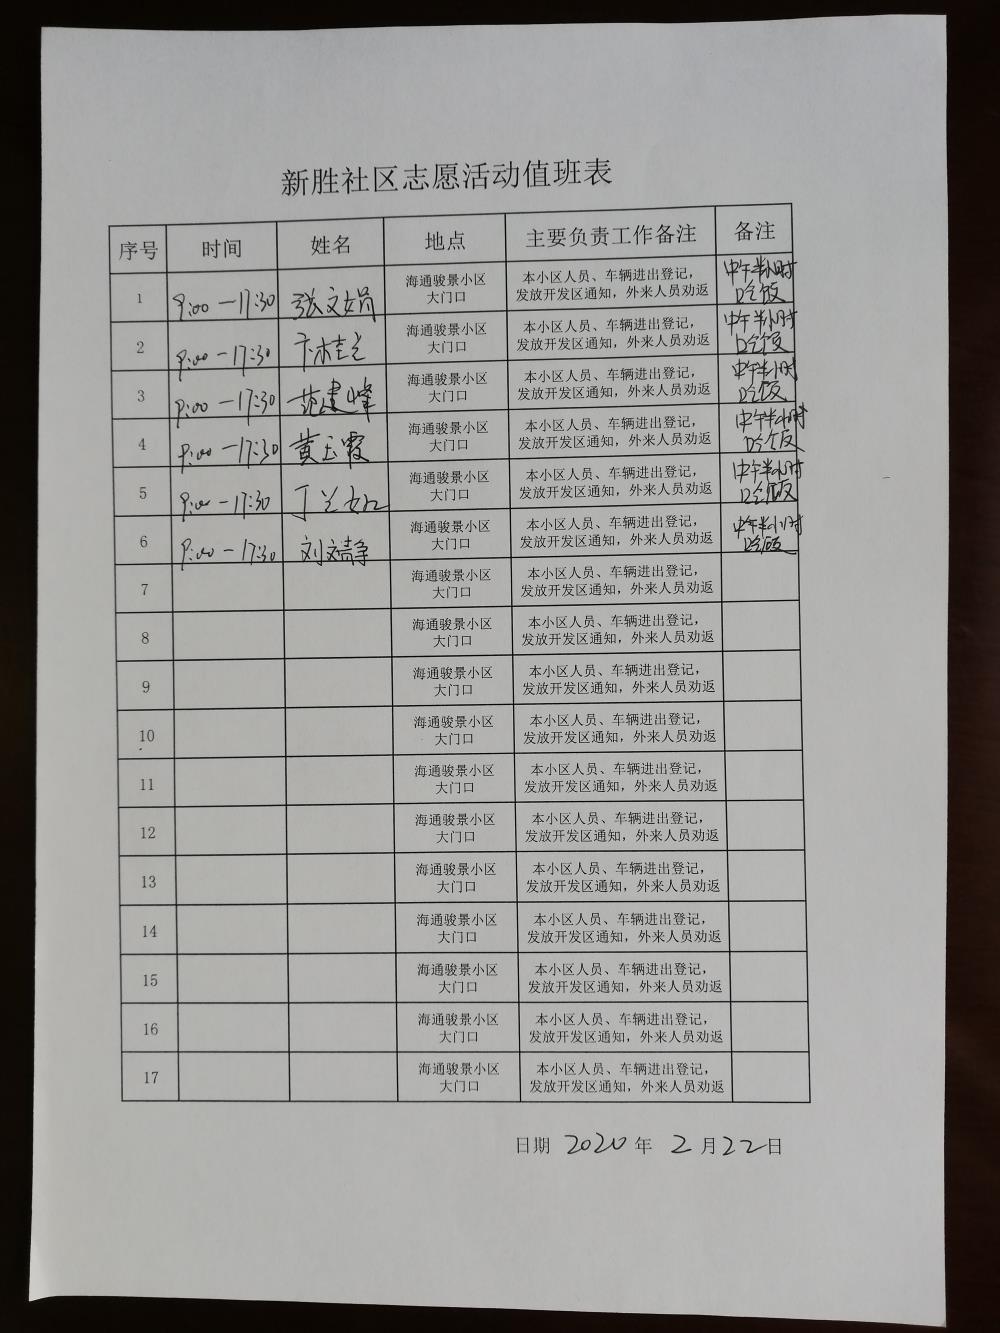 新胜社区志愿活动值班表
序号 时间 姓名 地点 主要负责工作备注 备注
1 9:00—17:30 张文娟 海通骏景小区 本小区人员、车辆进出登记， 中午半小时
大门口 发放开发区通知，外来人员劝返 吃饭
2 9:00—17:30 卞桂兰 海通骏景小区 本小区人员、车辆进出登记， 中午半小时
大门口 发放开发区通知，外来人员劝返 吃饭
3 9:00—17:30 范建峰 海通骏景小区 本小区人员、车辆进出登记， 中午半小时
大门口 发放开发区通知，外来人员劝返 吃饭
4 9:00—17:30 黄玉霞 海通骏景小区 本小区人员、车辆进出登记， 中午半小时
大门口 发放开发区通知，外来人员劝返 吃饭
5 9:00—17:30 丁兰 海通骏景小区 本小区人员、车辆进出登记， 中午半小时
大门口 发放开发区通知，外来人员劝返 吃饭
6 9:00—17:30 刘文静 海通骏景小区 本小区人员、车辆进出登记， 中午半小时
大门口 发放开发区通知，外来人员劝返 吃饭
7 海通骏景小区 本小区人员、车辆进出登记，
大门口 发放开发区通知，外来人员劝返
8 海通骏景小区 本小区人员、车辆进出登记，
大门口 发放开发区通知，外来人员劝返
9 海通骏景小区 本小区人员、车辆进出登记，
大门口 发放开发区通知，外来人员劝返
10 海通骏景小区 本小区人员、车辆进出登记，
大门口 发放开发区通知，外来人员劝返
11 海通骏景小区 本小区人员、车辆进出登记，
大门口 发放开发区通知，外来人员劝返
12 海通骏景小区 本小区人员、车辆进出登记，
大门口 发放开发区通知，外来人员劝返
13 海通骏景小区 本小区人员、车辆进出登记，
大门口 发放开发区通知，外来人员劝返
14 海通骏景小区 本小区人员、车辆进出登记，
大门口 发放开发区通知，外来人员劝返
15 海通骏景小区 本小区人员、车辆进出登记，
大门口 发放开发区通知，外来人员劝返
16 海通骏景小区 本小区人员、车辆进出登记，
大门口 发放开发区通知，外来人员劝返
17 海通骏景小区 本小区人员、车辆进出登记，
大门口 发放开发区通知，外来人员劝返
日期 2020 年 2 月 22 日